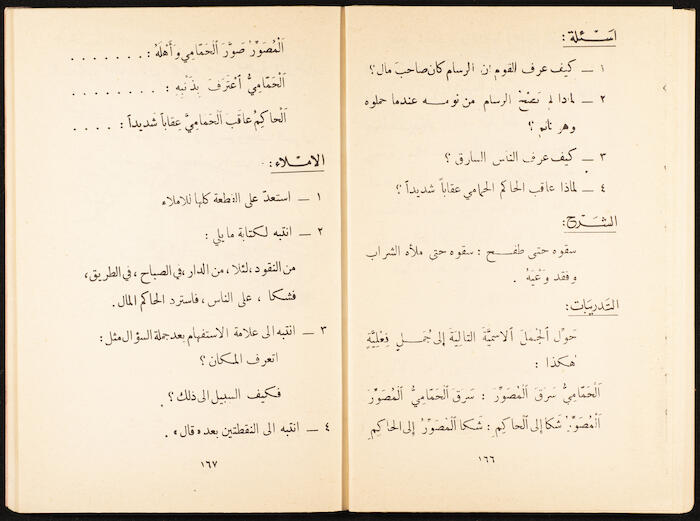 اسئلة :
١ ـ كيف عرف القوم ان الرسام كان صاحب مال ؟
٢ ـ لماذا لم يَصْحُ الرسام من نومه عندما حملوه
وهو نائم ؟
٣ ـ كيف عرف الناس السارق ؟
٤ ـ لماذا عاقب الحاكم الحمامي عقاباً شديداً ؟
الشرح :
سقوه حتى طفح : سقوه حتى ملأه الشراب
وفقد وَعْيَهُ .
التدريبات :
حَوِّل الجُملَ الاسميَّةَ التالِيةَ إلى جُمَلٍ فِعْلِيَّةٍ
هكذا :
الحَمَّامِيُّ سَرَقَ المُصَوِّرَ : سَرَقَ الحَمَّامِيُّ المُصَوِّرَ
المُصَوِّرُ شكا إلى الحاكِمِ : شَكا المُصَوِّرُ إلى الحاكِمِ
١٦٦
المُصَوِّرُ صَوَّرَ الحَمَّامِي وأهْلَهُ : . . . . . . .
الحَمَّامِيُّ اعْتَرَفَ بِذَنْبِهِ : . . . . . . . .
الحاكِمُ عاقَبَ الحَمَّامِيَّ عِقاباً شديداً : . . . .
الاملاء :
١ ـ استعدّ على القطعة كلها للاملاء
٢ ـ انتبه لكتابة ما يلي :
من النقود ، لئلا ، من الدار ، في الصباح ، في الطريق ،
فشكا ، على الناس ، فاسترد الحاكم المال .
٣ ـ انتبه الى علامة الاستفهام بعد جملة السؤال مثل :
اتعرف المكان ؟
فكيف السبيل الى ذلك ؟
٤ ـ انتبه الى النقطتين بعد «قال» .
١٦٧